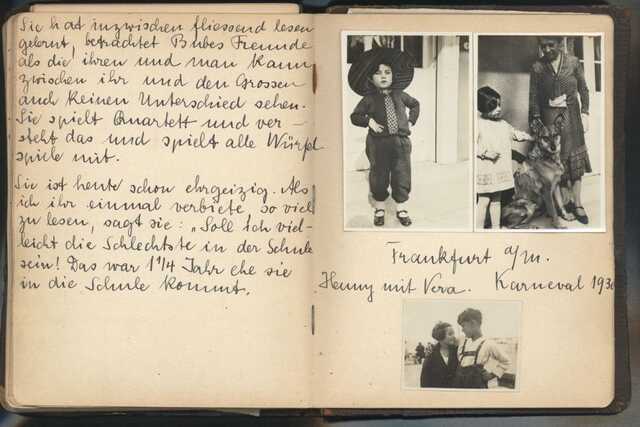 Sie hat inzwischen fliessend lesen
gelernt, betrachtet Bubes Freunde
als die ihren und man kann
zwischen ihr und den Grossen
auch keinen Unterschied sehen.
Sie spielt Quartett und ver-
steht das und spielt alle Würfel
spiele mit.
Sie ist heute schon ehrgeizig. Als
ich ihr einmal verbiete, so viel
zu lesen, sagt sie: „Soll ich viel-
leicht die Schlechtste in der Schule
sein! Das war 1 1/4 Jahr ehe sie
in die Schule kommt.
Frankfurt a/m.
Henny mit Vera. Karneval